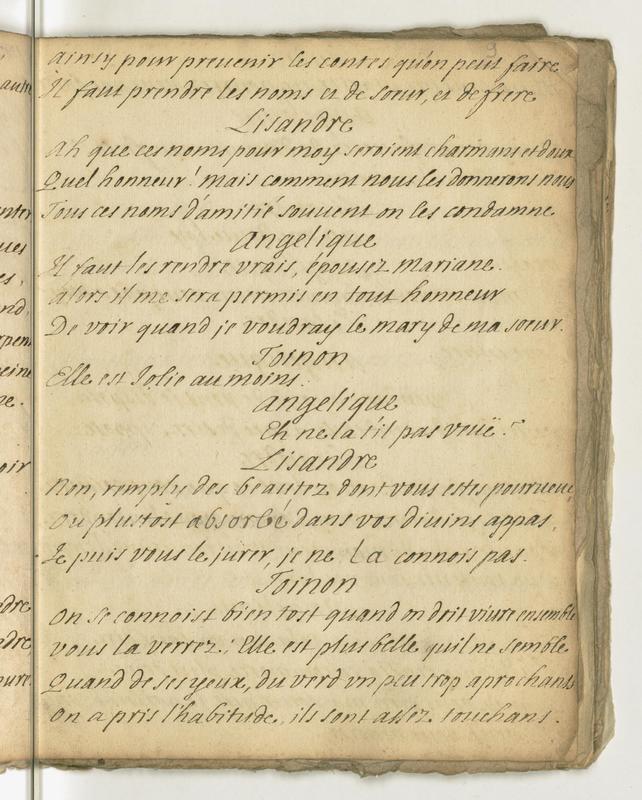 9
ainsy pour preuenir les contes qu'on peut faire
Il faut prendre les noms et de soeur, et de frere
Lisandre
Ah que ces noms pour moy seroient charmans et doux
Quel honneur! mais comment nous les donnerons nous
Tous ces noms d'amitié souuent on les condamne
Angelique
Il faut les rendre vrais, épousez Mariane.
alors il me sera permis en tout honneur
De voir quand je voudray le mary de ma soeur.
Toinon
Elle est Jolie au moins.
Angelique
Eh ne la t'il pas vüe?
Lisandre
Non, remply des beautez dont vous estes pourueue
Ou plustost absorbé dans vos diuins appas,
Je puis vous le jurer, je ne la connois pas.
Toinon
On se connoist bien tost quand on doit viure ensemble
vous la verrez; Elle est plus belle qu'il ne semble
Quand de ses yeux, du verd vn peu trop aprochants
On a pris l'habitude, ils sont assez touchans.